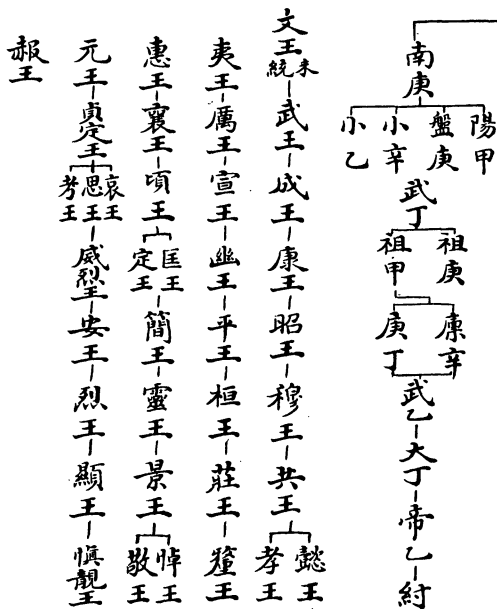 南庚
陽甲
盤庚
小辛
小乙
武丁
祖庚
祖甲
廩辛
庚丁
武乙 大丁 帝乙 紂
文王 未統 武王 成王 康王 昭王 穆王 共王
懿王
孝王
夷王 厲王 宣王 幽王 平王 桓王 莊王 釐王
惠王 襄王 頃王
匡王
定王
簡王 靈王 景王
悼王
敬王
元王 貞定王
哀王
思王
考王
威烈王 安王 烈王 顯王 慎靚王
赧王